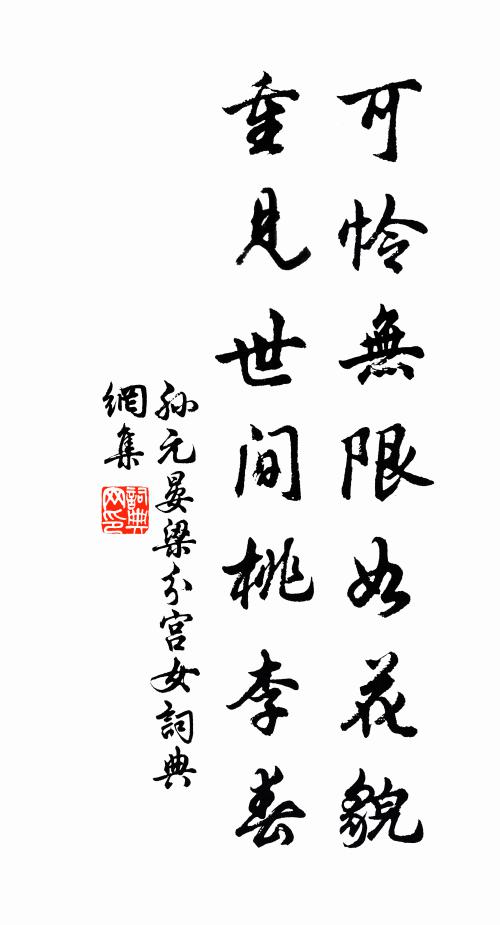 可憐無限如花貌
重見世间桃李春
孙元晏梁分宫女詞典
網集
詞典
网印